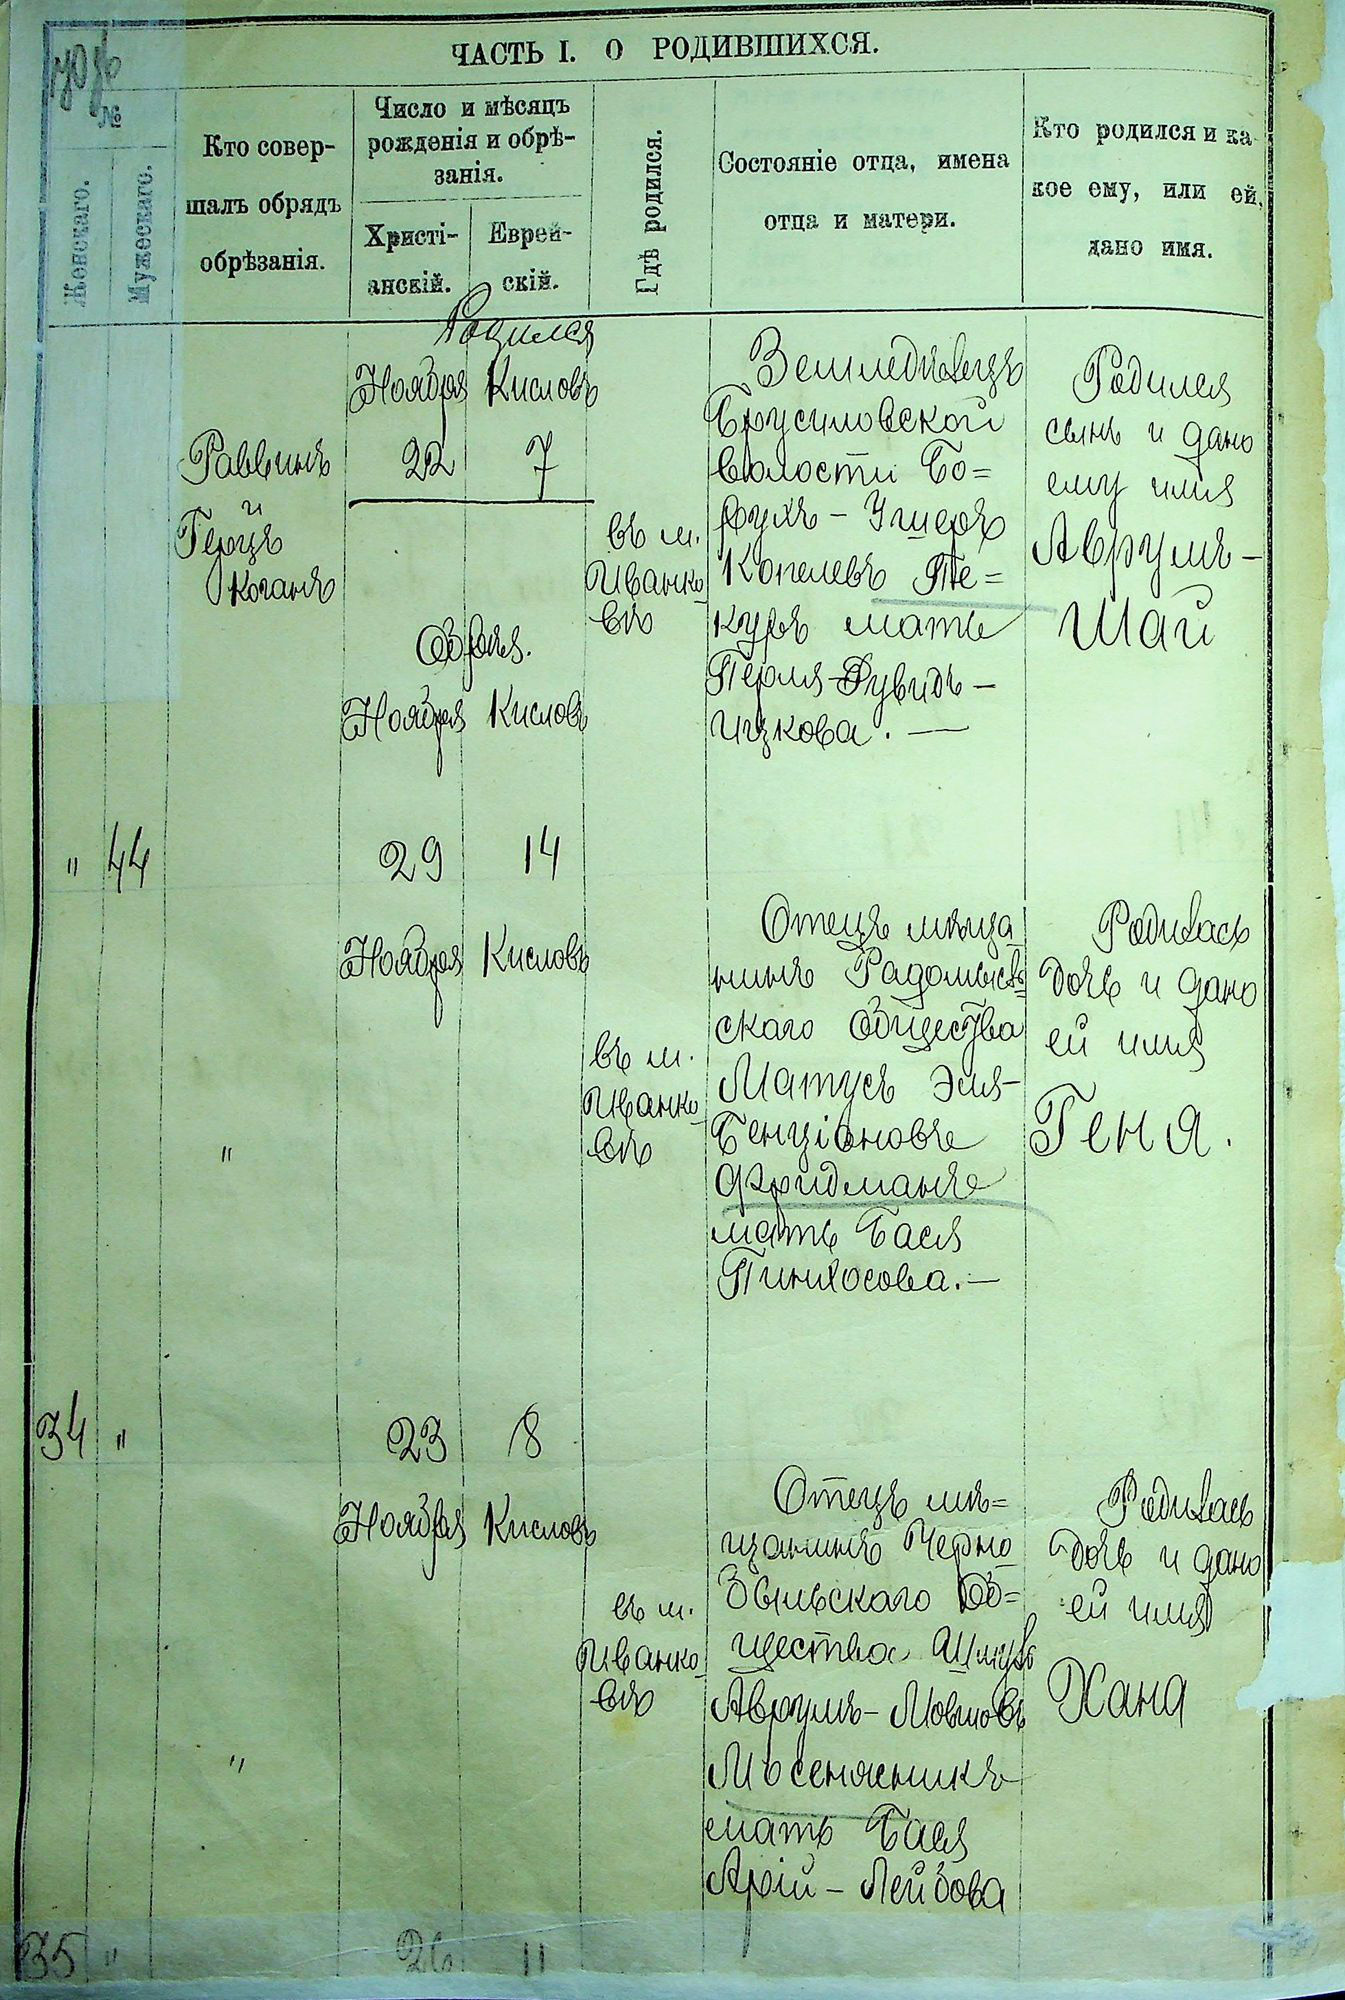 ЧАСТЬ I. О РОДИВШИХСЯ.
№
Женскаго.
Мужескаго.
Кто совер-
шалъ обрядъ
обрѣзанія.
Число и мѣсяцъ
рожденія и обрѣ-
занія.
Христі-
анскій.
Еврей-
скій.
Гдѣ родился.
Состояніе отца, имена
отца и матери.
Кто родился и ка-
кое ему, или ей,
дано имя.
" 44
Раввинъ
и
Герцъ
Коганъ
Родился
Ноября Кисловъ
22 7
Обрѣз.
Ноября Кисловъ
29 14
въ м.
Иванко-
вѣ
Земледѣлецъ
Брусиловской
волости Бо=
рухъ-Ушеръ
Копелевъ Те=
куръ мать
Перля-
Ицкова. —
Родился
сынъ и дано
ему имя
Аврумъ-
Шай
34 "
"
Ноября Кисловъ
23 8
въ м.
Иванко-
вѣ
Отецъ мѣща-
нинъ Радомысль=
скаго Общества
Матусъ Эля-
Бенціоновъ
Фридманъ
мать Бася
Пинхосова. —
Родилась
дочь и дано
ей имя
Геня.
35 "
"
Ноября Кисловъ
26 11
въ м.
Иванко-
вѣ
Отецъ мѣ=
щанинъ Черно-
быльскаго Об=
щества
Аврумъ-Мовшовъ
мать Бася
Арій-Лейбова
Родилась
дочь и дано
ей имя
Хана